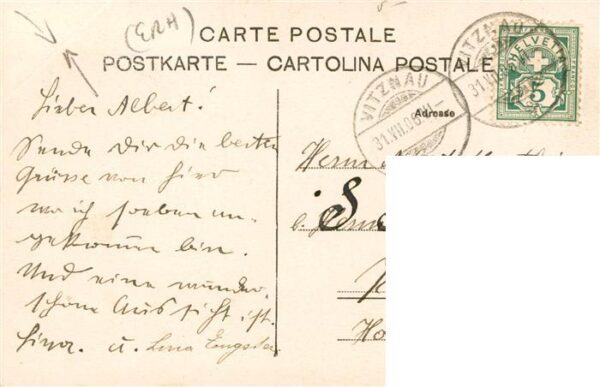 (ERH)
CARTE POSTALE
POSTKARTE — CARTOLINA POSTALE
HELVETIA
5
VITZNAU
31.VII.06.VII—
VITZNAU
31.VII
Adresse
Lieber Albert!
Sende Dir die besten
Grüsse von hier
wo ich soeben an-
gekommen bin.
Und eine wunder-
schöne Aussicht ist
hier. u. Lina
Herrn
S